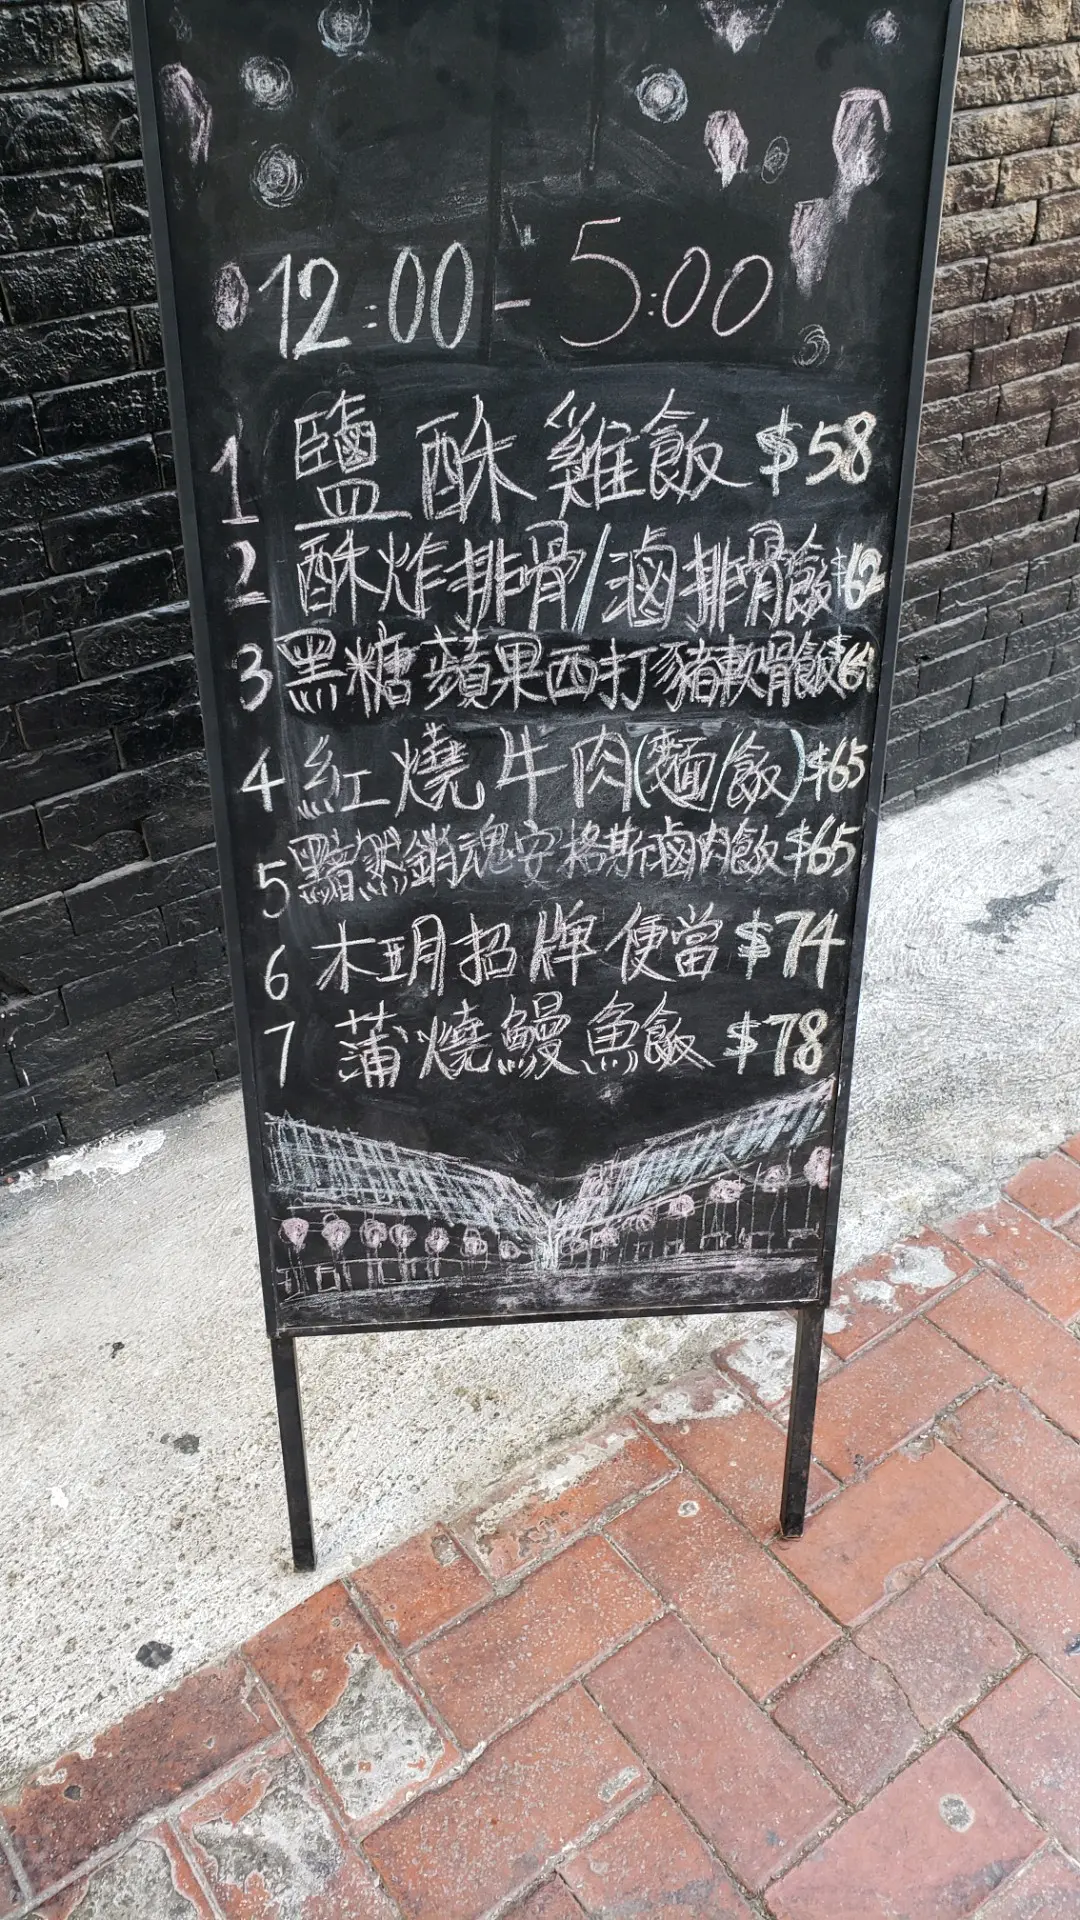 12:00 - 5:00
1 鹽酥雞飯 $58
2 酥炸排骨/滷排骨飯 $62
3 黑糖蘋果西打豬軟骨飯
4 紅燒牛肉(麵/飯) $65
5 黯然銷魂安格斯滷肉飯 $65
6 木玥招牌便當 $74
7 蒲燒鰻魚飯 $78